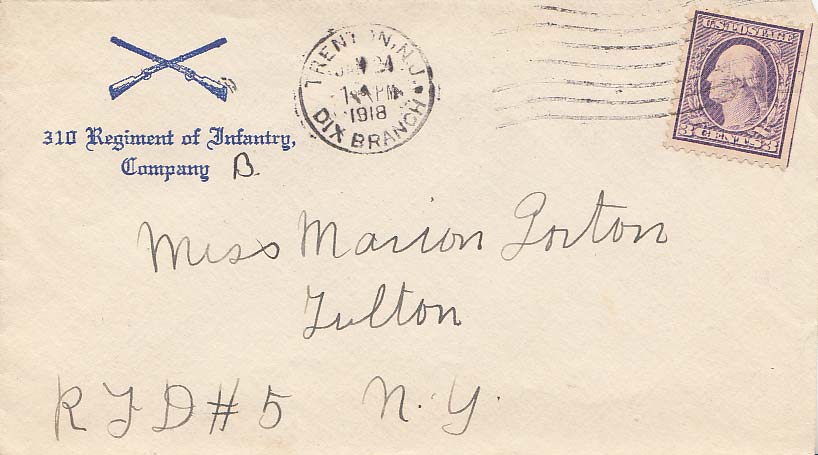 310 Regiment of Infantry,
Company B.
TRENTON, N.J.
PM
1918
DIX BRANCH
U.S. POSTAGE
3 CENTS 3
Miss Marion Gorton
Fulton
RFD #5 N.Y.